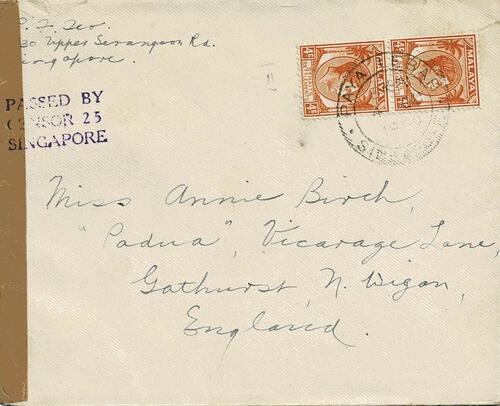 Teo.
30 Upper Serangoon Rd.
Singapore.
PASSED BY
CENSOR 25
SINGAPORE
MALAYA
MALAYA
PAYA LEBAR
Miss Annie Birch,
"Padua", Vicarage Lane,
Gathurst, N. Wigan,
England.